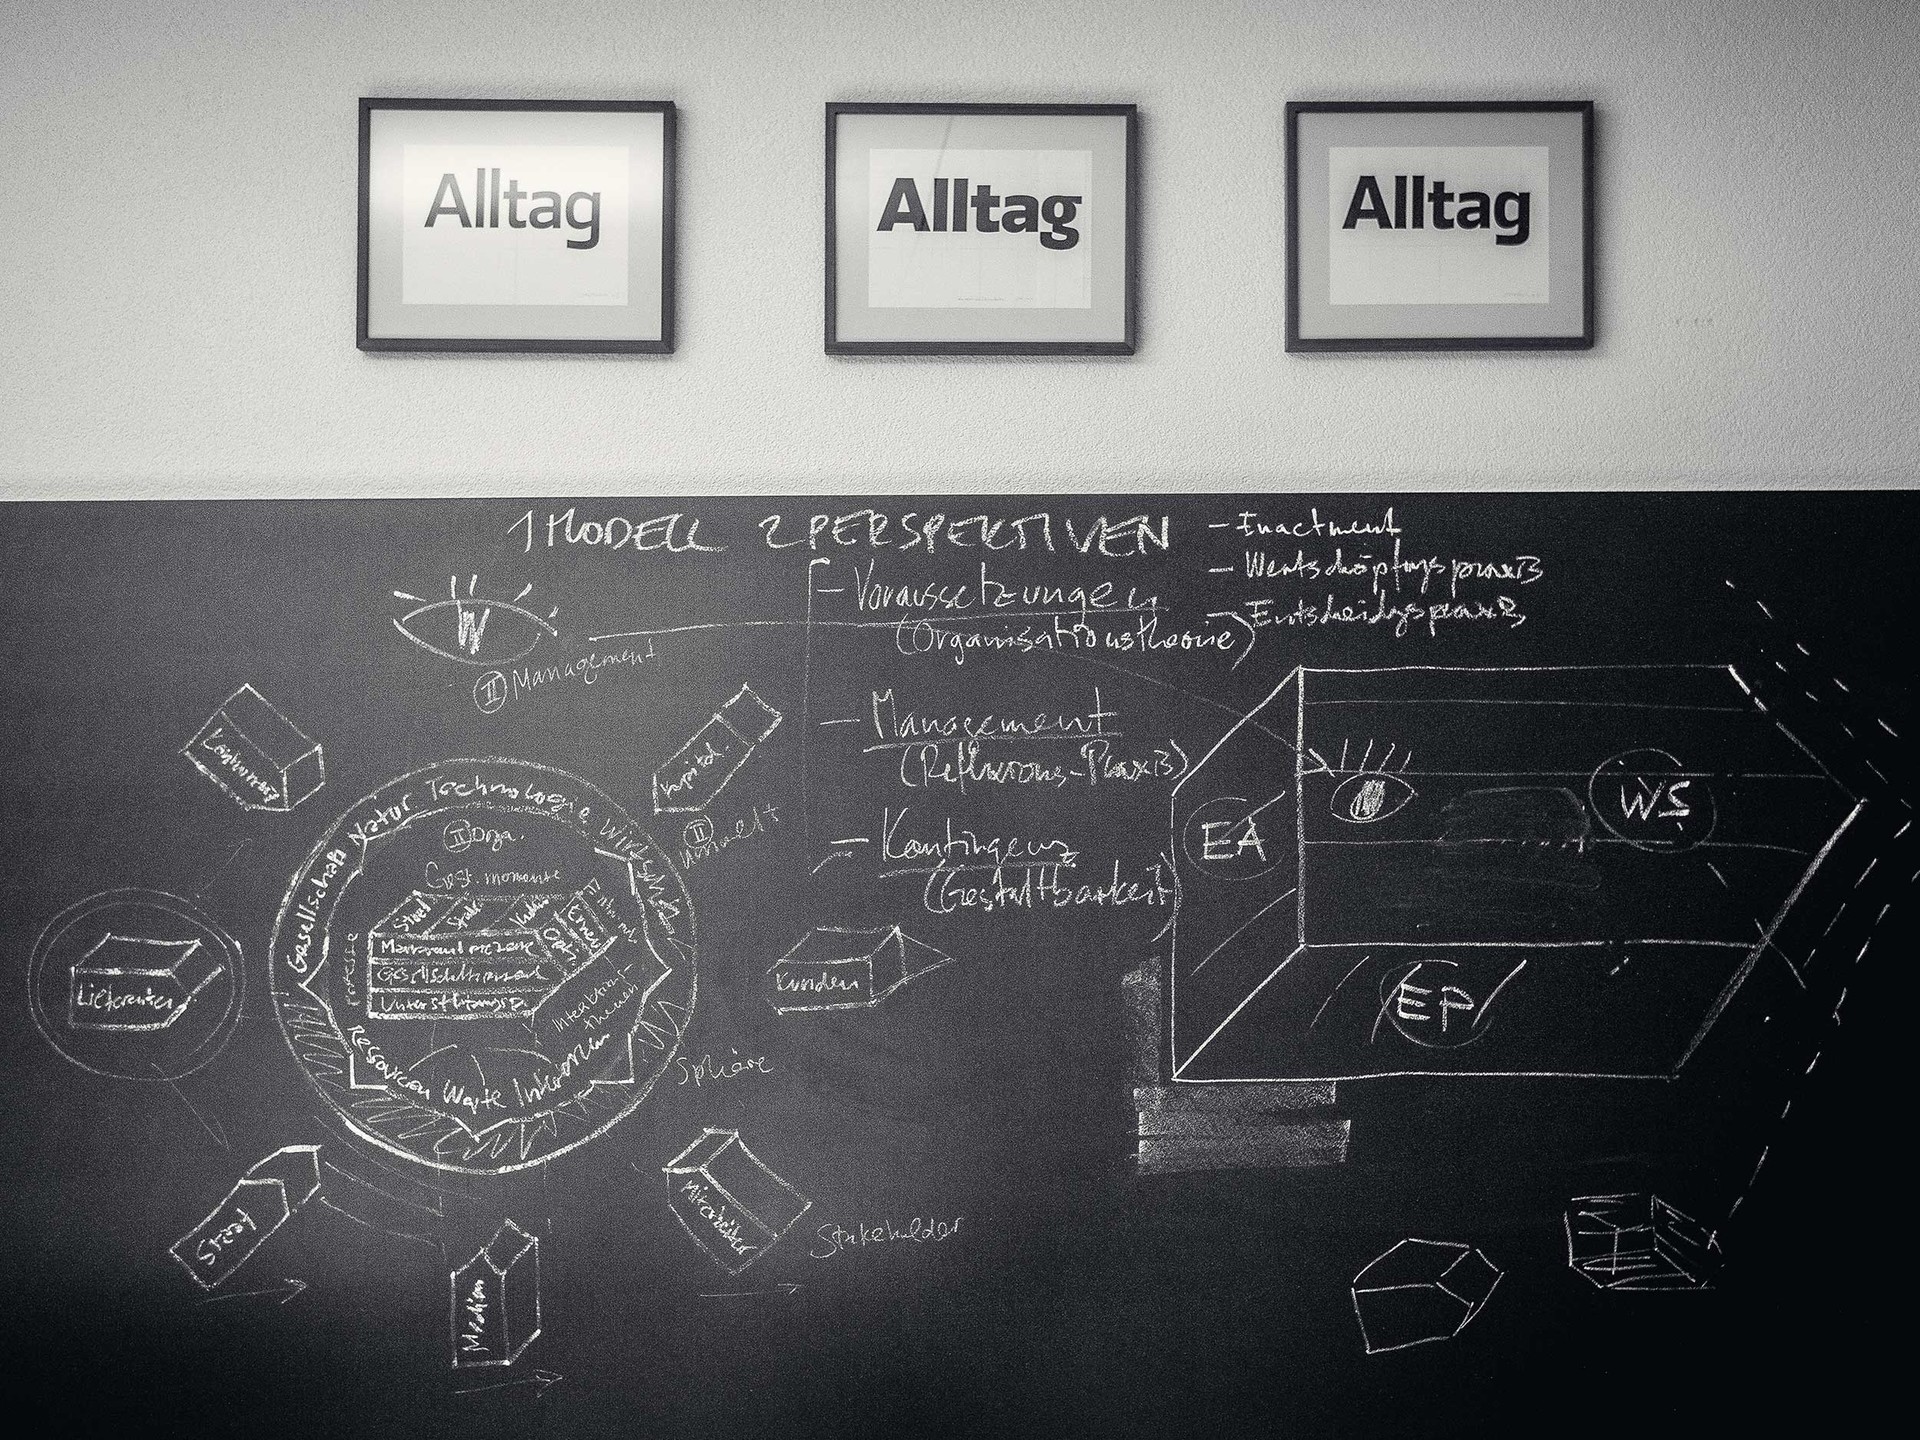 Alltag
Alltag
Alltag
1 MODELL 2 PERSPEKTIVEN
– Voraussetzungen
(Organisationstheorie)
– Management
(Reflexions-PraxiS)
– Kontingenz
(Gestaltbarkeit)
– Enactment
– Wertschöpfgspraxis
– Entscheidgspraxis
W
II Management
Konkurrenz
Kapital.
II Umwelt
Gesellschaft Natur Technologie Wirtschaft
II Orga.
Gest. momente
Strat
Strukt
Kultur
Erneu
Opti
Prozesse
Managementprozesse
Geschäftsprozesse
Unterstützungsp.
Interaktionsthemen
Ressourcen Werte Interessen
Sphäre
Lieferanten
Kunden
Staat
Medien
Mitarbeiter
Stakeholder
EA
WS
EP